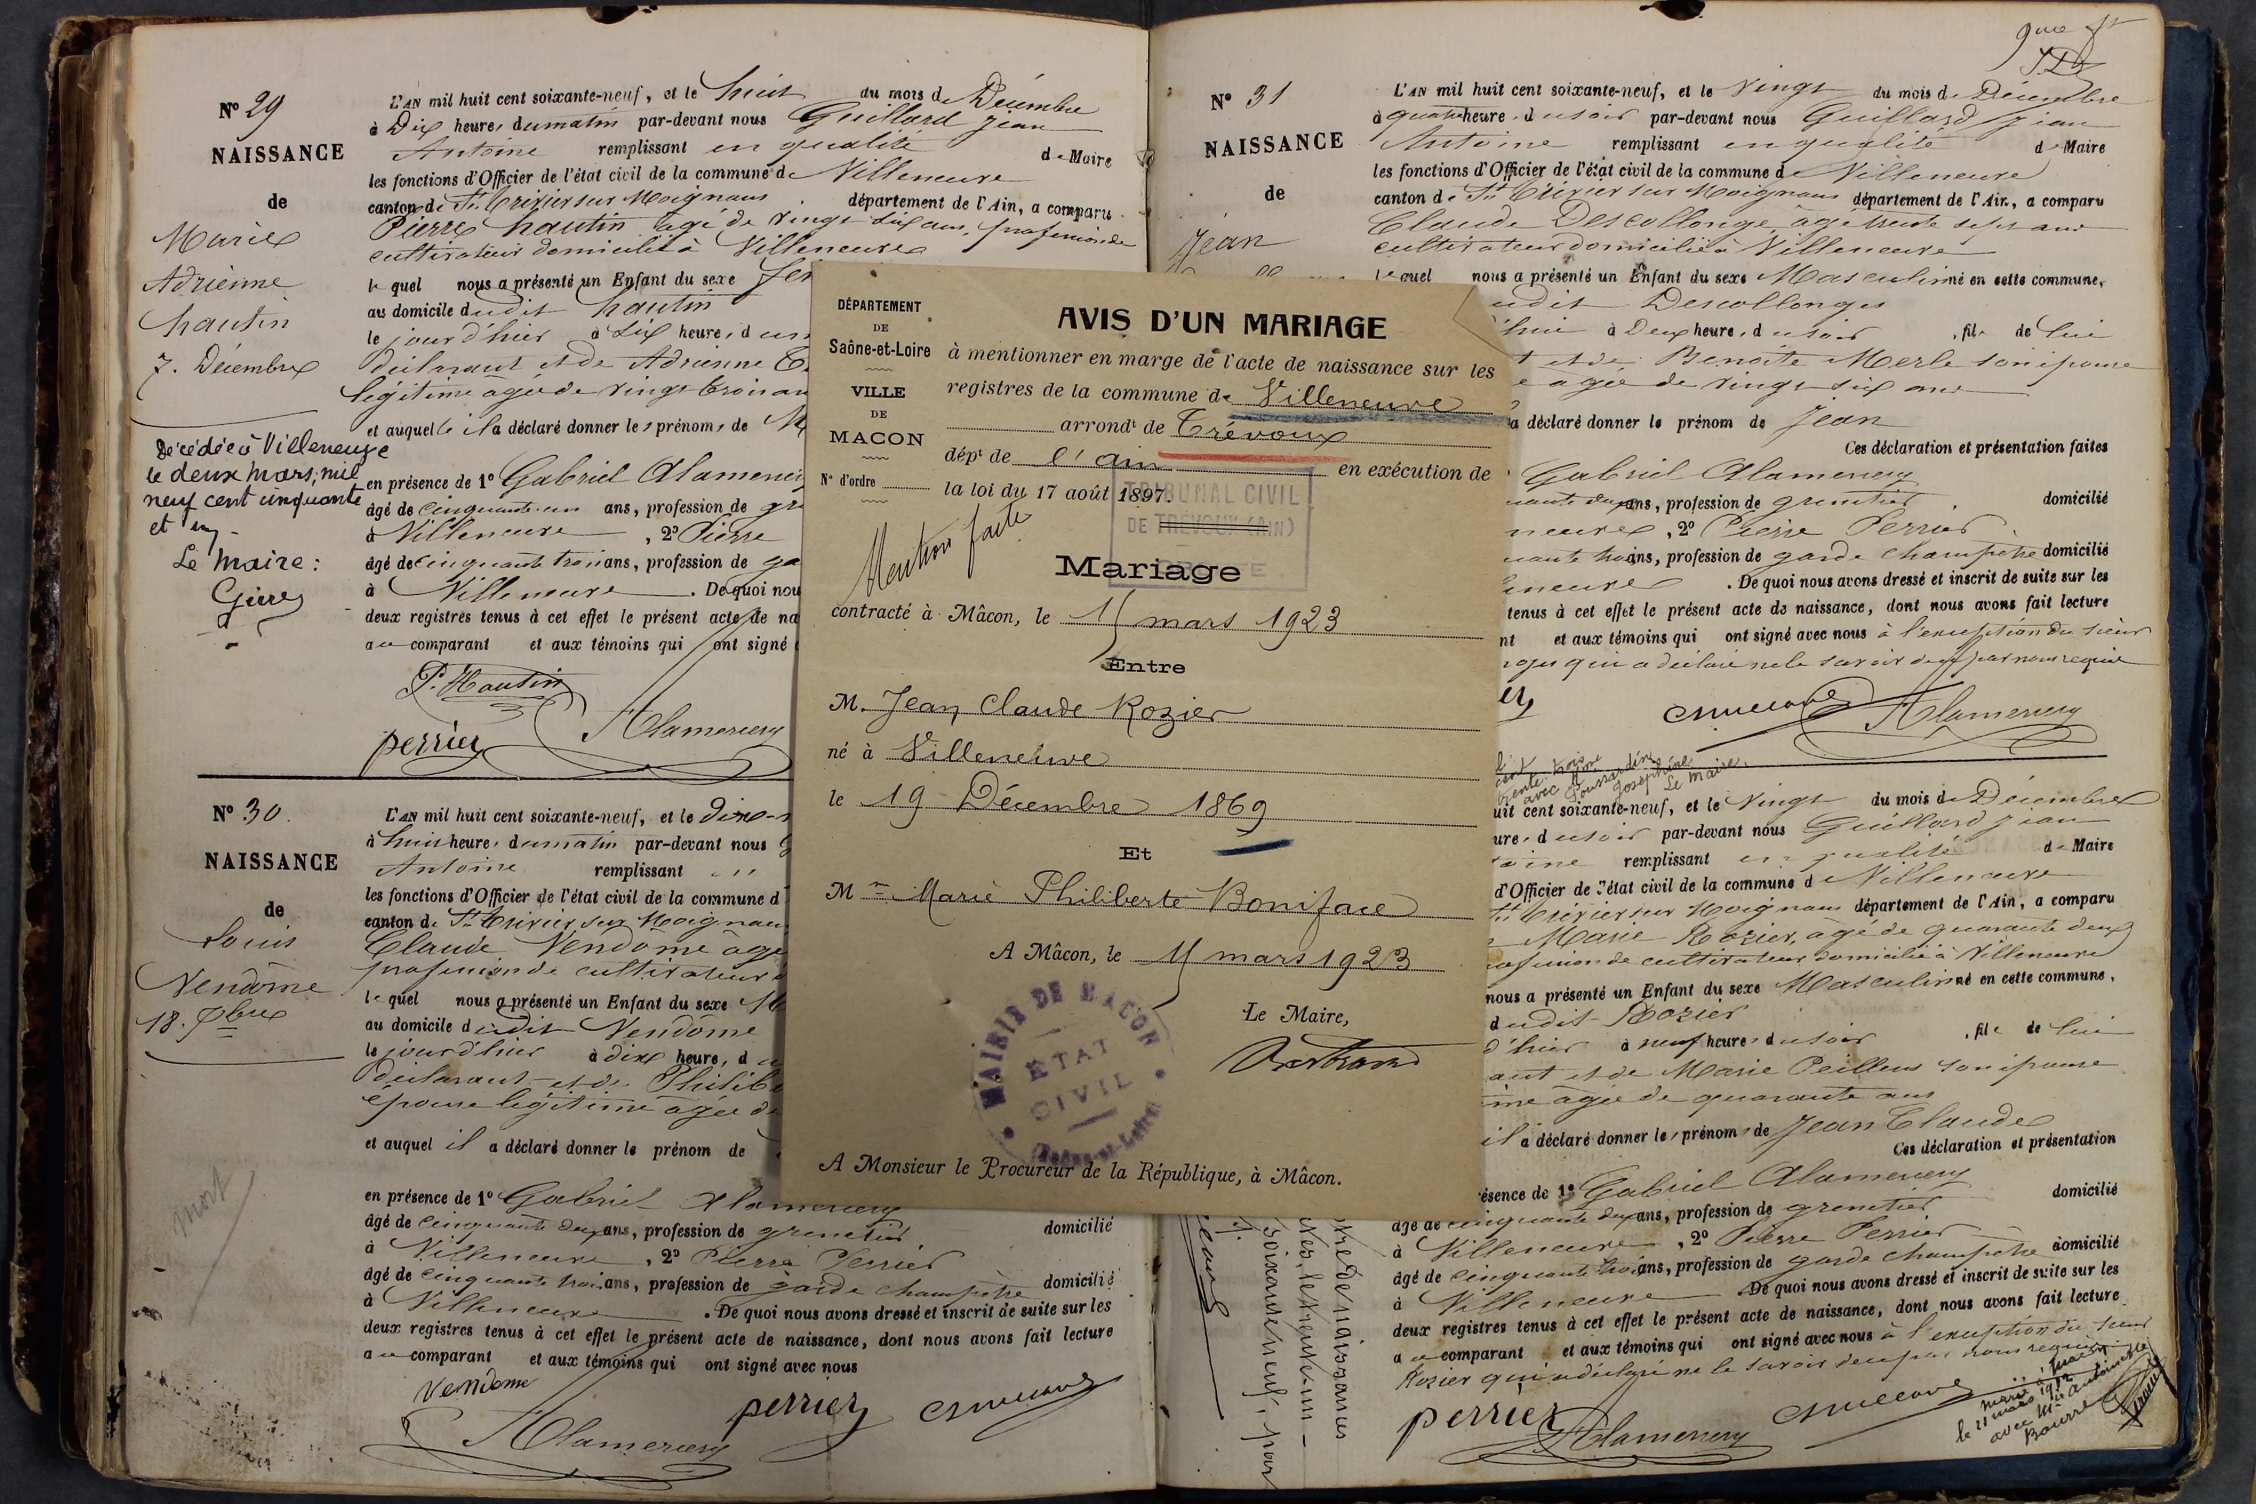 N° 29
NAISSANCE
de
Marie
Adrienne
hautin
7. Décembre
Décédée à Villeneuve
le deux mars, mil
neuf cent cinquante
et un
Le Maire :
L'AN mil huit cent soixante-neuf, et le huit du mois de Décembre
à Dix heures du matin par-devant nous Guillard Jean
Antoine remplissant en qualité de Maire
les fonctions d'Officier de l'état civil de la commune de Villeneuve
canton de St. Trivier sur Moignans département de l'Ain, a comparu
Pierre hautin âgé de vingt six ans, profession de
cultivateur domicilié à Villeneuve
le quel nous a présenté un Enfant du sexe
au domicile dudit hautin
le jour d'hier à Six heures d
déclarant et de Adrienne
légitime âgée de vingt trois an
et auquel il a déclaré donner les prénoms de
en présence de 1° Gabriel Alamercery
âgé de cinquante un ans, profession de
à Villeneuve , 2° Pierre
âgé de cinquante trois ans, profession de
à Villeneuve . De quoi nou
deux registres tenus à cet effet le présent acte de na
au comparant et aux témoins qui ont signé
P. Hautin
perrier Alamercery
N° 30.
NAISSANCE
de
Louis
Vendôme
18. Xbre
mort
L'AN mil huit cent soixante-neuf, et le dix-
à huit heures du matin par-devant nous
Antoine remplissant
les fonctions d'Officier de l'état civil de la commune d
canton de St. Trivier sur Moignans
Claude Vendôme âgé
profession de cultivateur
le quel nous a présenté un Enfant du sexe
au domicile dudit Vendôme
le jour d'hier à dix heures, d
déclarant et de Philib
épouse légitime âgée de
et auquel il a déclaré donner le prénom de
en présence de 1° Gabriel Alamercery
âgé de cinquante deux ans, profession de grenetier domicilié
à Villeneuve , 2° Pierre Perrier
âgé de cinquante trois ans, profession de garde champêtre domicilié
à Villeneuve . De quoi nous avons dressé et inscrit de suite sur les
deux registres tenus à cet effet le présent acte de naissance, dont nous avons fait lecture
au comparant et aux témoins qui ont signé avec nous
Vendome perrier
Alamercery
DÉPARTEMENT
DE
Saône-et-Loire
VILLE
DE
MACON
N° d'ordre
AVIS D'UN MARIAGE
à mentionner en marge de l'acte de naissance sur les
registres de la commune de Villeneuve
arrondt de Trévoux
dépt de l'ain en exécution de
la loi du 17 août 1897.
TRIBUNAL CIVIL
DE TRÉVOUX (AIN)
Mention faite
Mariage
contracté à Mâcon, le 15 mars 1923
Entre
M. Jean Claude Rozier
né à Villeneuve
le 19 Décembre 1869
Et
Mme Marie Philiberte Boniface
A Mâcon, le 15 mars 1923
Le Maire,
MAIRIE DE MACON
ETAT
CIVIL
(Saône-et-Loire)
A Monsieur le Procureur de la République, à Mâcon.
N° 31
NAISSANCE
de
Jean
L'AN mil huit cent soixante-neuf, et le Vingt du mois de Décembre
à quatre heures du soir par-devant nous Guillard Jean
Antoine remplissant en qualité de Maire
les fonctions d'Officier de l'état civil de la commune de Villeneuve
canton de St Trivier sur Moignans département de l'Ain, a comparu
Claude Descollonge, âgé trente sept ans
cultivateur domicilié à Villeneuve
le quel nous a présenté un Enfant du sexe Masculin né en cette commune,
udit Descollonges
d'hier à Deux heures, du soir , fils de lui
t et de Benoite Merle son épouse
e âgée de vingt six ans
a déclaré donner le prénom de Jean
Ces déclaration et présentation faites
Gabriel Alamercery
uante deux ans, profession de grenetier domicilié
neuve , 2° Pierre Perrier
uante trois ans, profession de garde champêtre domicilié
neuve . De quoi nous avons dressé et inscrit de suite sur les
tenus à cet effet le présent acte de naissance, dont nous avons fait lecture
nt et aux témoins qui ont signé avec nous à l'exception du sieur
onges qui a déclaré ne le savoir de ce par nous requis
Alamercery
trente trois
avec Mme
Joséphine
Le Maire
uit cent soixante-neuf, et le Vingt du mois de Décembre
ure, du soir par-devant nous Guillard Jean
toine remplissant en qualité de Maire
d'Officier de l'état civil de la commune de Villeneuve
St Trivier sur Moignans département de l'Ain, a comparu
Marie Rozier, âgé de quarante deux
rofession de cultivateur domicilié à Villeneuve
nous a présenté un Enfant du sexe Masculin né en cette commune,
dudit Rozier
d'hier à neuf heures du soir , fils de lui
ant et de Marie Peilleux son épouse
ime âgée de quarante ans
il a déclaré donner les prénoms de Jean Claude
Ces déclaration et présentation
ésence de 1° Gabriel Alamercery domicilié
âgé de cinquante deux ans, profession de grenetier
à Villeneuve , 2° Pierre Perrier
âgé de cinquante trois ans, profession de garde champêtre domicilié
à Villeneuve . De quoi nous avons dressé et inscrit de suite sur les
deux registres tenus à cet effet le présent acte de naissance, dont nous avons fait lecture
au comparant et aux témoins qui ont signé avec nous à l'exception du sieur
Rozier qui a déclaré ne le savoir de ce par nous requis
perrier
Alamercery
marié à Macon
le 21 mars 1912
avec Mlle Antoinette
Bourre
de naissances
soixante neuf, pour